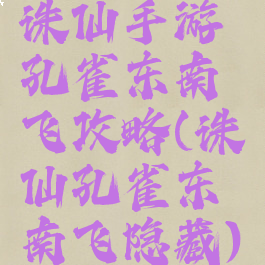 诛仙手游
孔雀东南
飞攻略(诛
仙孔雀东
南飞隐藏)